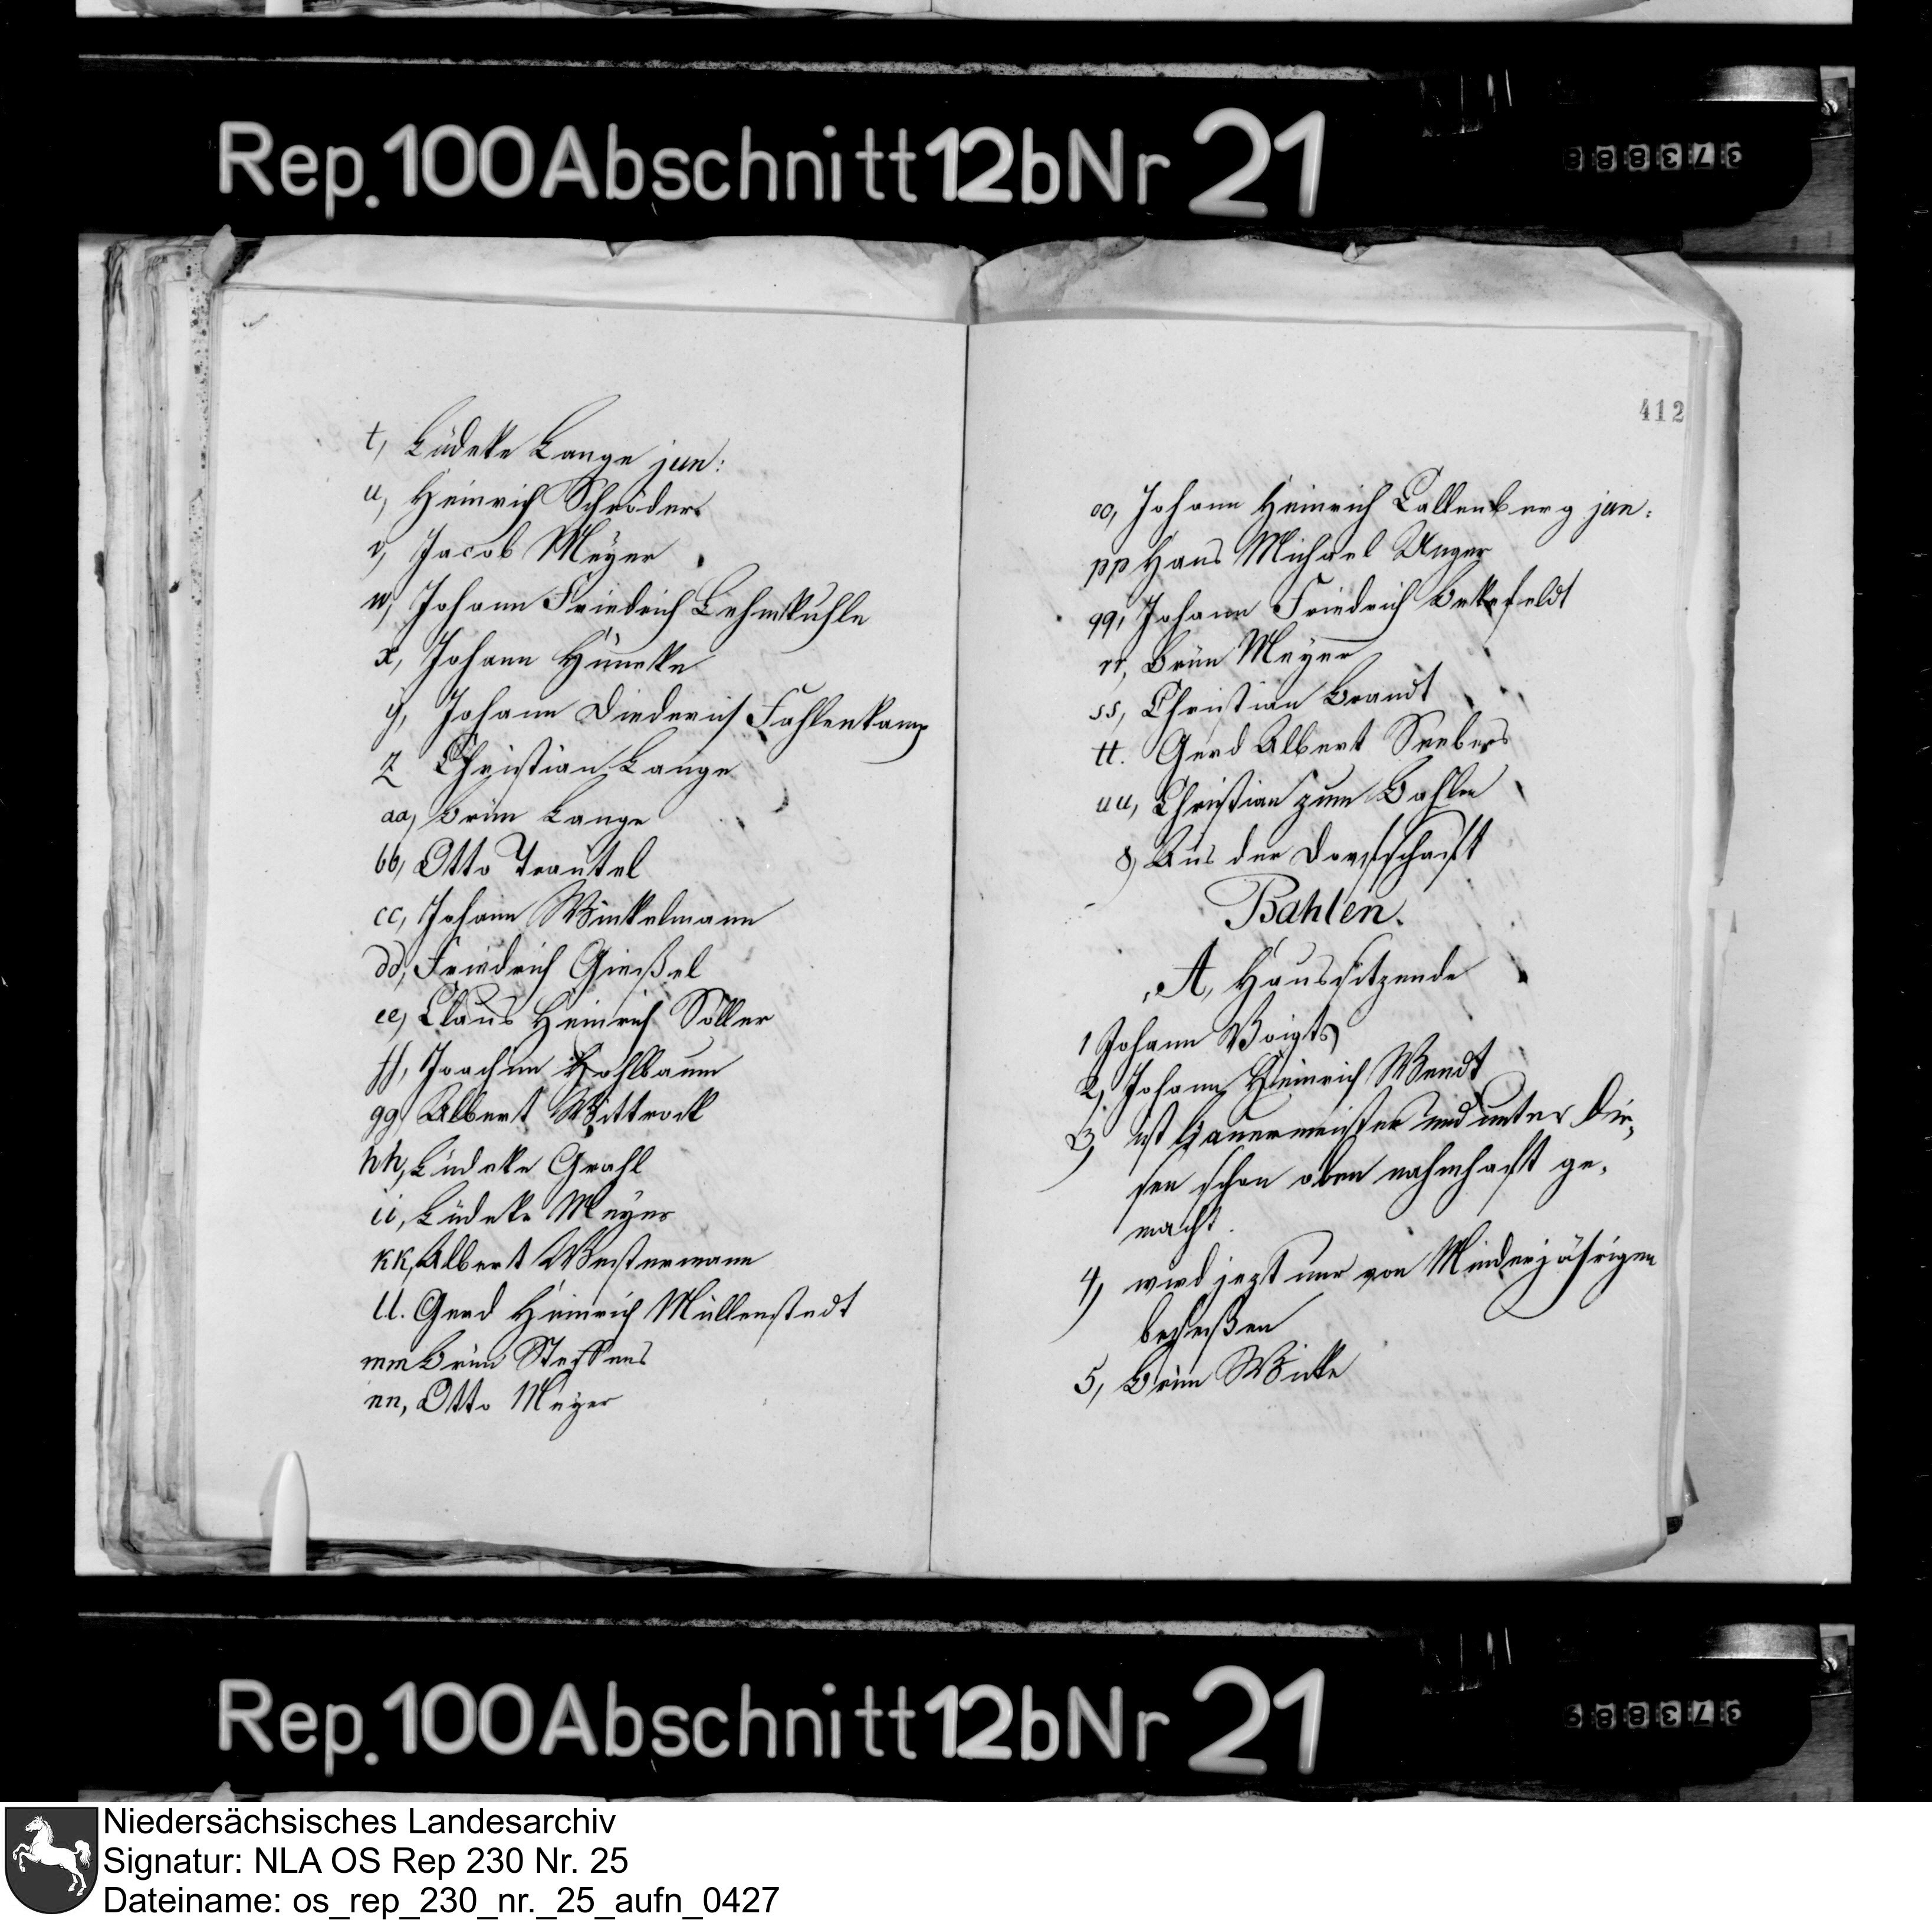 Rep. 100 Abschnitt 12b Nr 21
373888
t, Lüdeke Lange jun:
u, Heinrich Schröder
v, Jacob Meyer
w, Johann Friedrich Lehmkuhle
x, Johann Hüneke
y, Johann Diederich Fahlenkamp
z Christian Lange
aa, Brün Lange
bb, Otto Trautel
cc, Johann Winkelmann
dd, Friedrich Gießel
ee, Claus Heinrich Söller
ff, Joachim Kohlbaum
gg Albert Wittrock
hh, Lüdeke Grahl
ii, Lüdeke Meyer
kk, Albert Westermann
ll. Gerd Heinrich Müllenstedt
mm Brün Steffens
nn, Otto Meyer
412
oo, Johann Heinrich Callenberg jun:
pp Hans Michael Unger
qq, Johann Friedrich Bekefeldt
rr, Brün Meyer
ss, Christian Brandt
tt. Gerd Albert Seebers
uu, Christian zum Bahlen
8, Aus der Dorfschaft
Bahlen.
A, Haussitzende
1 Johann Voigts
2, Johann Heinrich Wendt
3, ist Bauermeister und unter die-
sen schon oben nahmhaft ge-
macht.
4, wird jezt nur von Minderjährigen
beseßen
5, Brün Wicke
Rep. 100 Abschnitt 12b Nr 21
373889
Niedersächsisches Landesarchiv
Signatur: NLA OS Rep 230 Nr. 25
Dateiname: os_rep_230_nr._25_aufn_0427